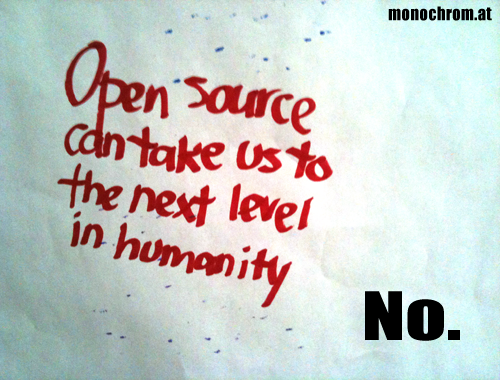 monochrom.at
Open source
can take us to
the next level
in humanity
No.